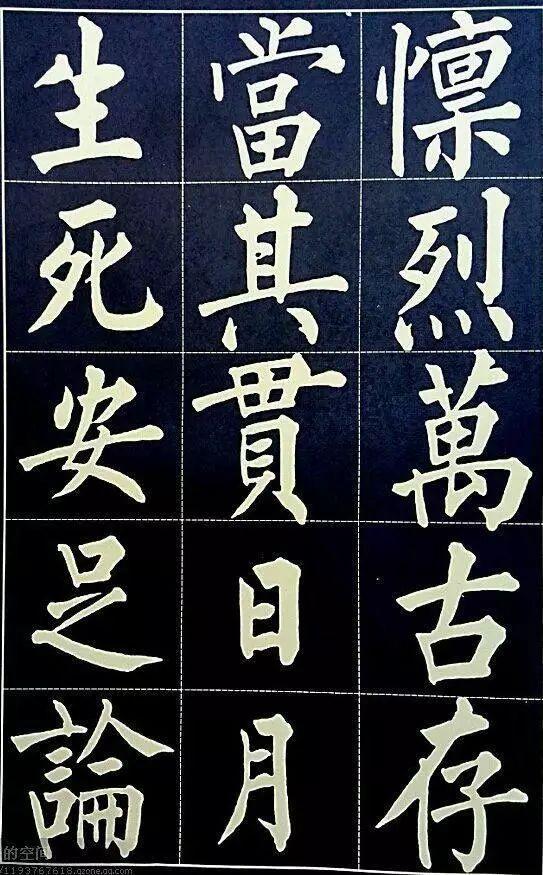 懍烈萬古存
當其貫日月
生死安足論
的空间
/1193767618.qzone.qq.com